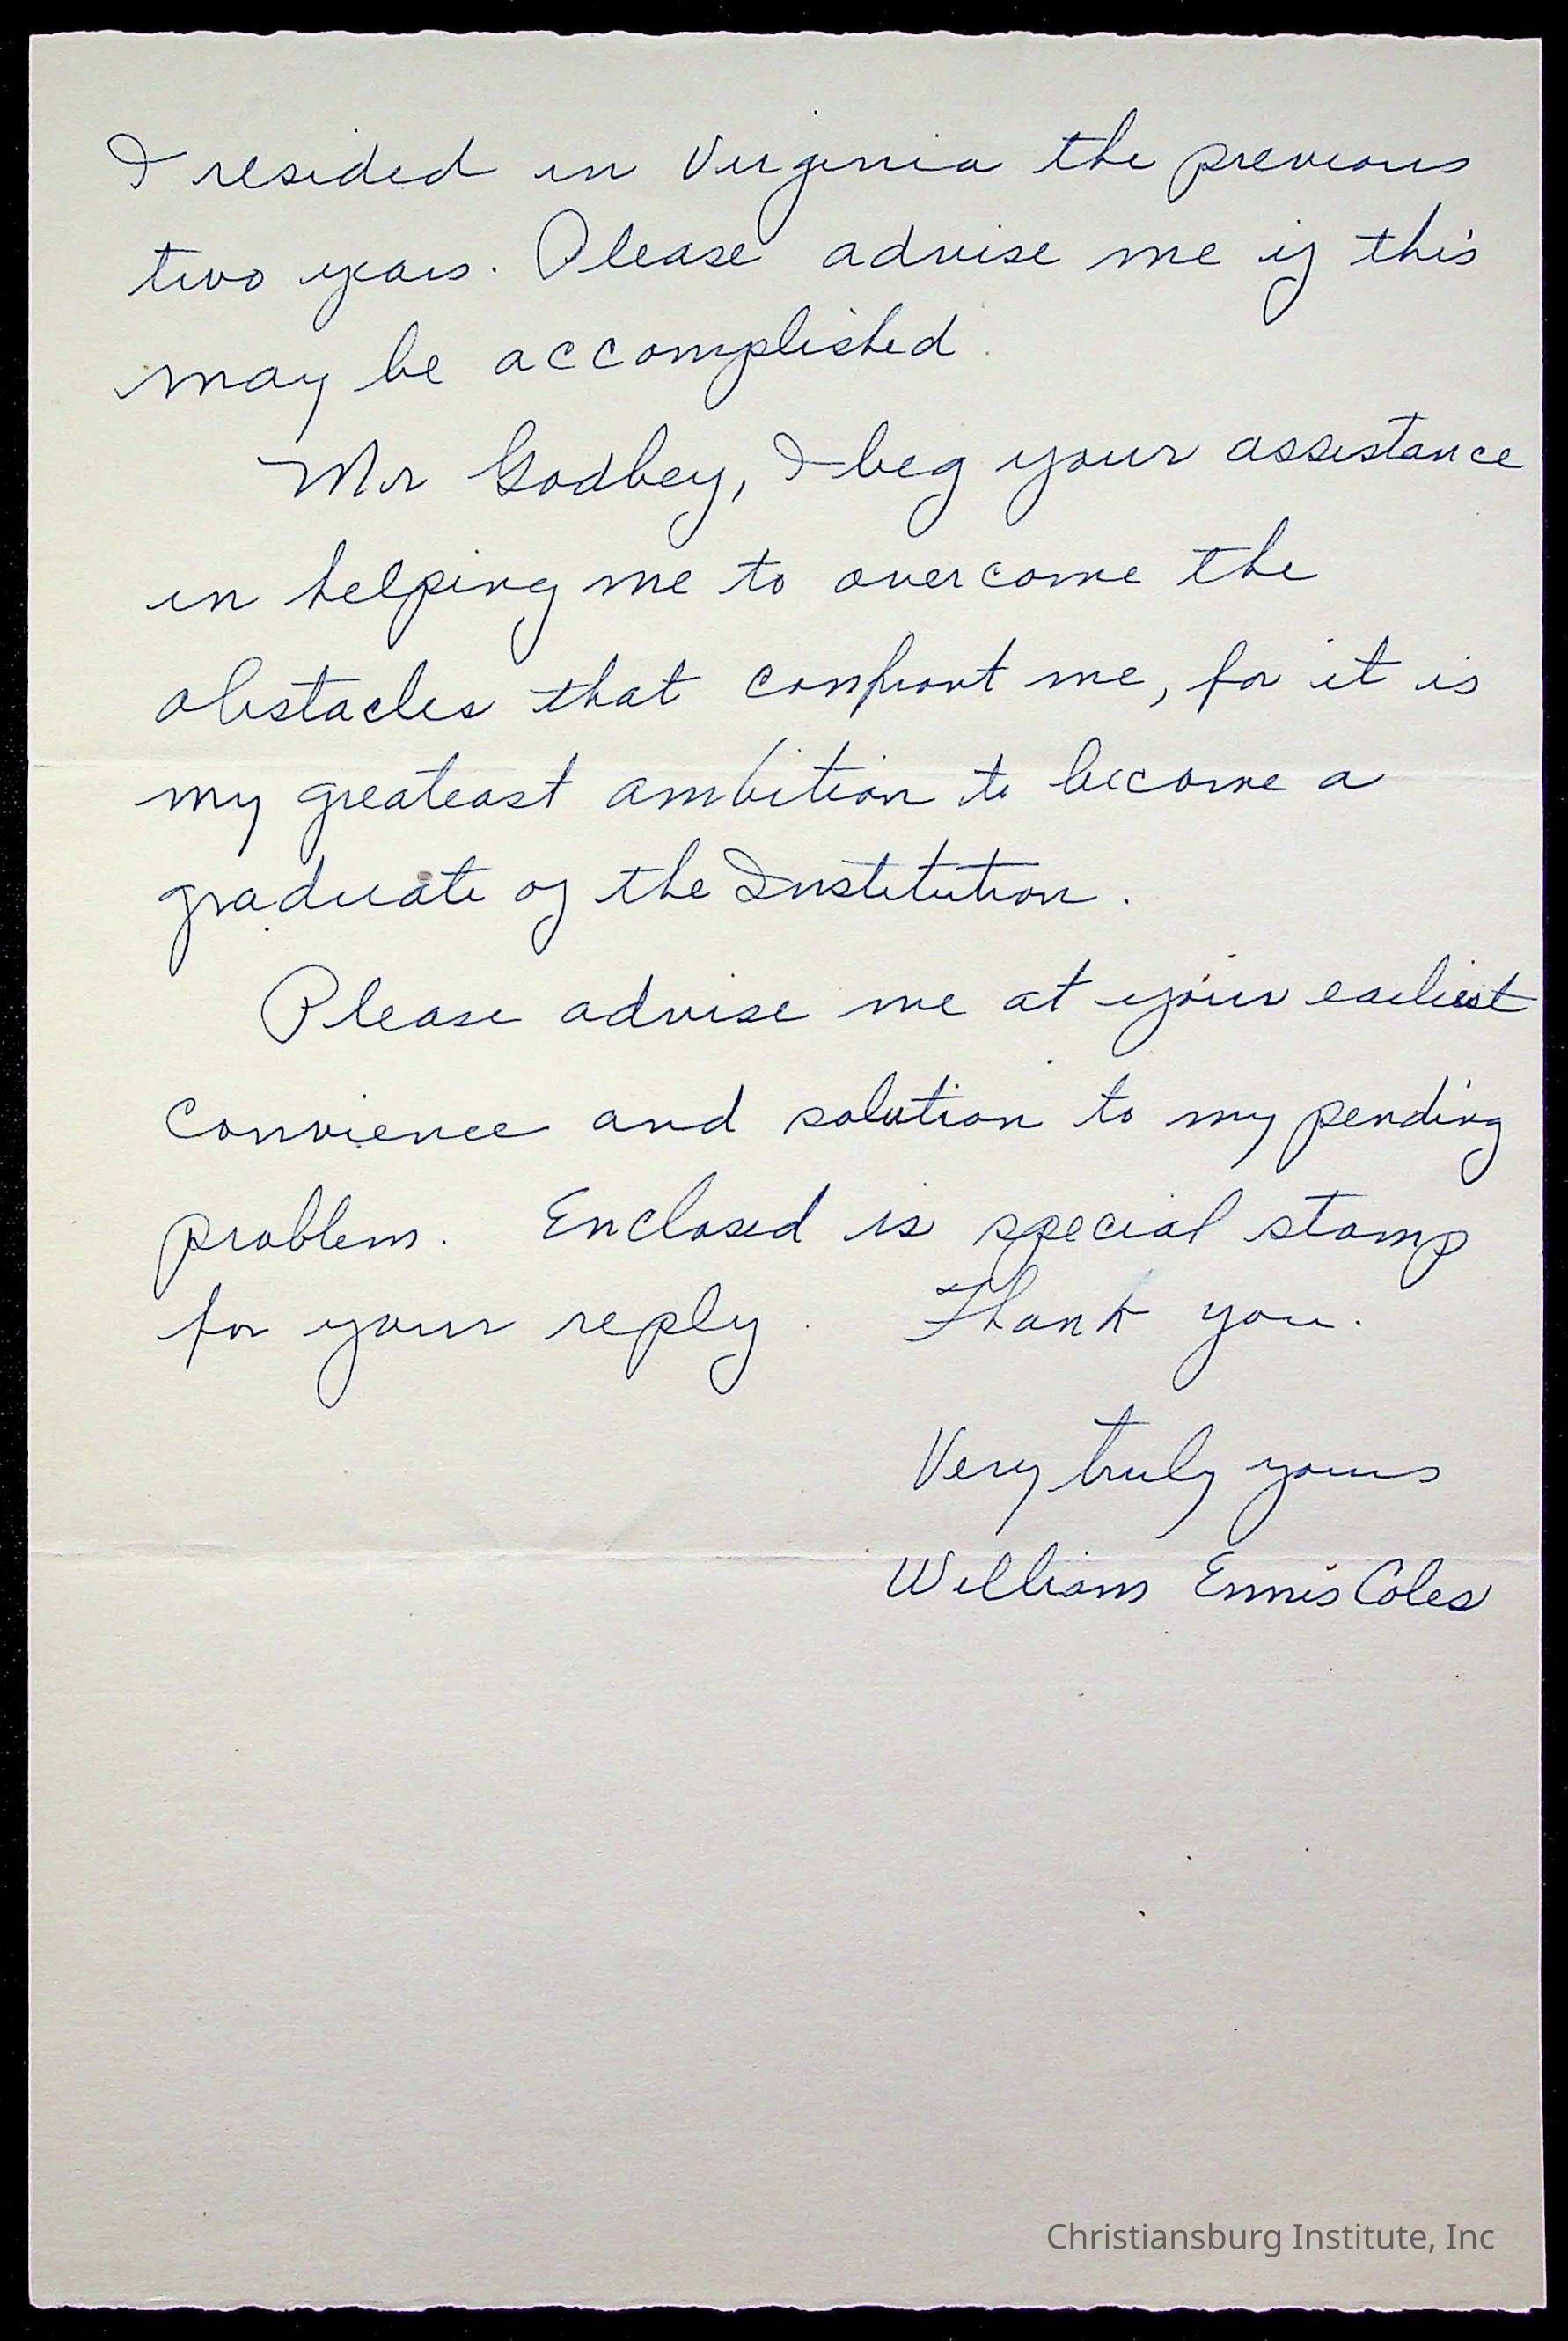 I resided in Virginia the previous
two years. Please advise me if this
may be accomplished.
Mr Godbey, I beg your assistance
in helping me to overcome the
obstacles that confront me, for it is
my greateast ambition to become a
graduate of the Institution.
Please advise me at your earliest
convience and solution to my pending
problem. Enclosed is special stamp
for your reply. Thank you.
Very truly yours
William Ennis Coles
Christiansburg Institute, Inc